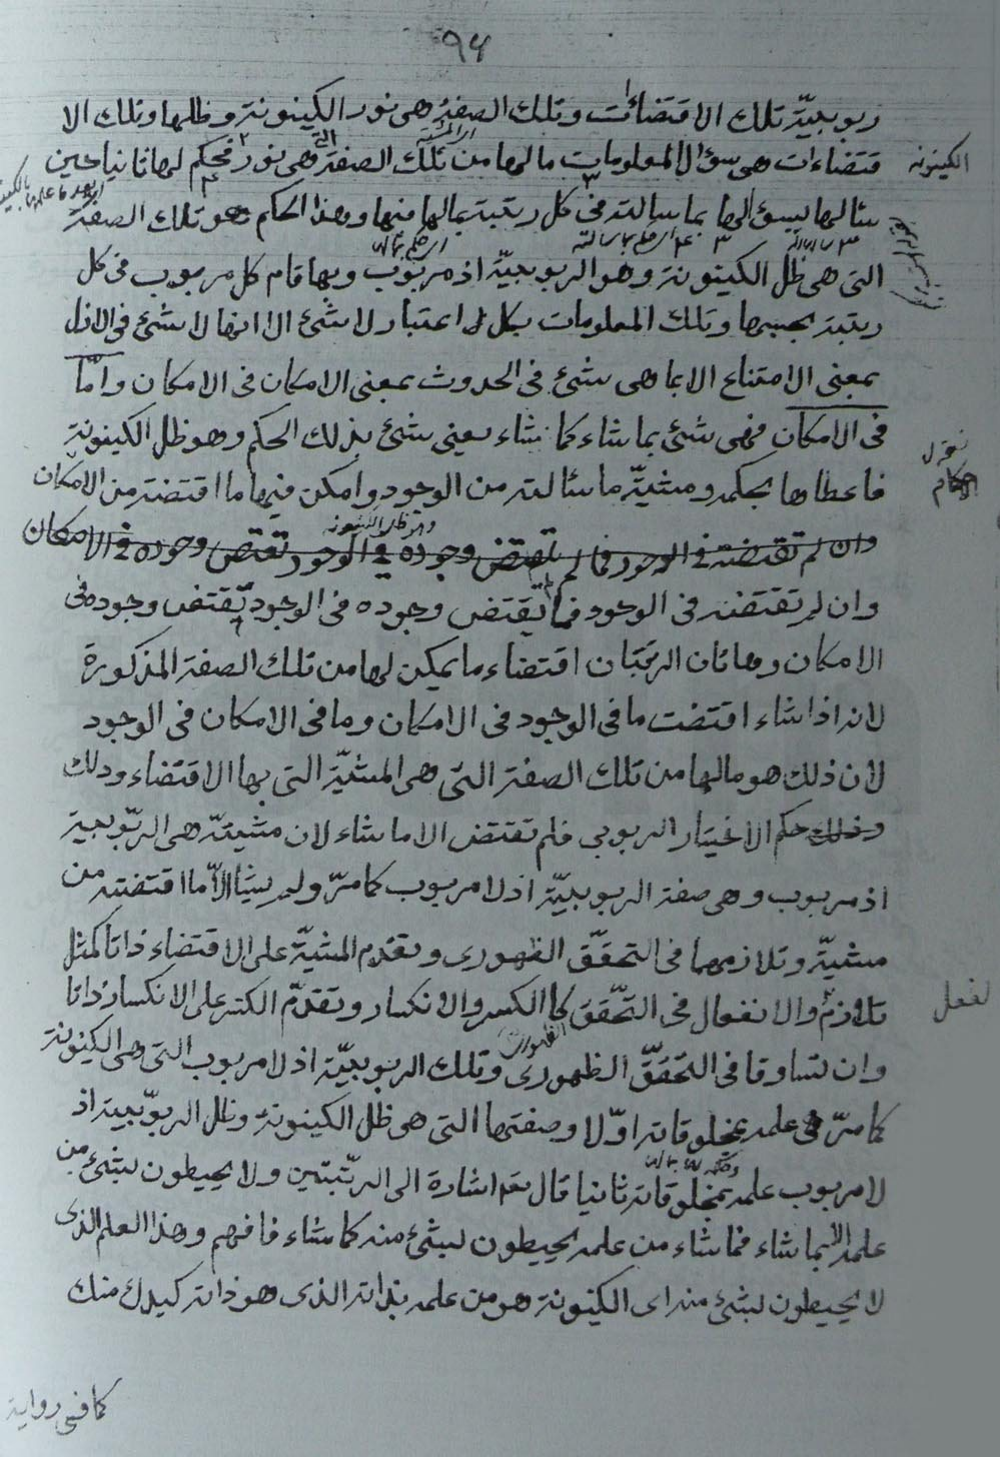 ٩٤
ربوبيّة تلك الاقتضاءات وتلك الصفة هى نور الكينونة وظلها وتلك الا
قتضاءات هى سؤال المعلومات ما لها من تلك الصفة التى هى نور فحكم لها ثانيا حين
الكينونه
سألها بسؤالها بما سالته فى كل رتبة بمالها منها وهذا الحكم هو تلك الصفة
التى هى ظل الكينونة وهو الربوبيّة اذ مربوب وبها قام كل مربوب فى كل
رتبة بحسبها وتلك المعلومات بكل اعتبار لا شئ الا انها لا شئ فى الازل
بمعنى الامتناع الا بما هى شئ فى الحدوث بمعنى الامكان فى الامكان وامّا
فى الامكان فهى شئ بما شاء كما شاء يعنى شئ بذلك الحكم وهو ظل الكينونة
فاعطاها بحكمه ومشيّته ما سألته من الوجود وامكن فيها ما اقتضته من الامكان
وان لم تقتضه فى الوجود فما لم تقتض وجوده فى الوجود تقتض وجوده فى الامكان
وان لم تقتضه فى الوجود فما لم تقتض وجوده فى الوجود تقتض وجوده فى
الامكان وهاتان الرتبتان اقتضاء ما يمكن لها من تلك الصفة المذكورة
لانه اذا شاء اقتضت ما فى الوجود فى الامكان وما فى الامكان فى الوجود
لان ذلك هو مالها من تلك الصفة التى هى المشيّة التى بها الاقتضاء وذلك
وذلك حكم الاختيار الربوبى فلم تقتض الا ما شاء لان مشيته هى الربّوبية
اذ مربوب وهى صفة الربوبيّة اذ لا مربوب كما مرّ ولم يشأ الاّ ما اقتضته من
مشيّة وتلازمهما فى التحقّق الظهورى وتقدم المشيّة على الاقتضاء ذاتا كمثل
تلازم والانفعال فى التّحقق كالكسر والانكسار وتقدّم الكسر على الانكسار ذاتا
لفعل
وان تساوقا فى التحقّق الظهورى وتلك الربوبيّة اذ لا مربوب التى هى الكينونة
كما مرّ هى علمه بمخلوقاته اوّلا وصفتها التى هى ظل الكينونة وظل الربوّبية اذ
لا مربوب علمه بمخلوقاته ثانيا قال تعم اشارة الى الرتّبتين ولا يحيطون بشئ من
علمه الا بما شاء فما شاء من علمه يحيطون بشئ منه كما شاء فافهم وهذا العلم الذى
لا يحيطون بشئ منه اى الكينونة هو من علمه بذاته الذى هو ذاته كيدك منك
كما فى رواية